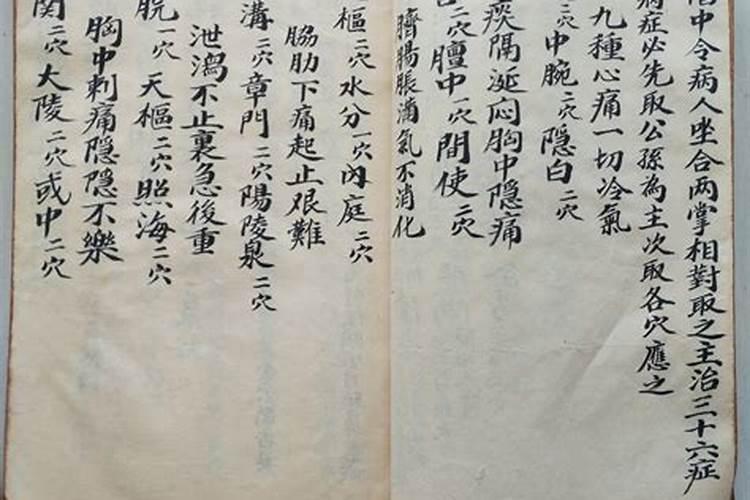 中令病人坐合两掌相對取之主治三十六症
病症必先取公孫為主次取各穴應之
九種心痛一切冷氣
二穴中腕二穴隱白二穴
痰隔涎悶胸中隱痛
二穴膻中一穴間使二穴
臍腸脹滿氣不消化
樞二穴水分一穴內庭二穴
脇肋下痛起止艰難
溝二穴章門二穴陽陵泉二穴
泄瀉不止裏急後重
脱一穴天樞二穴照海二穴
胸中刺痛隱隱不樂
関二穴大陵二穴或中二穴